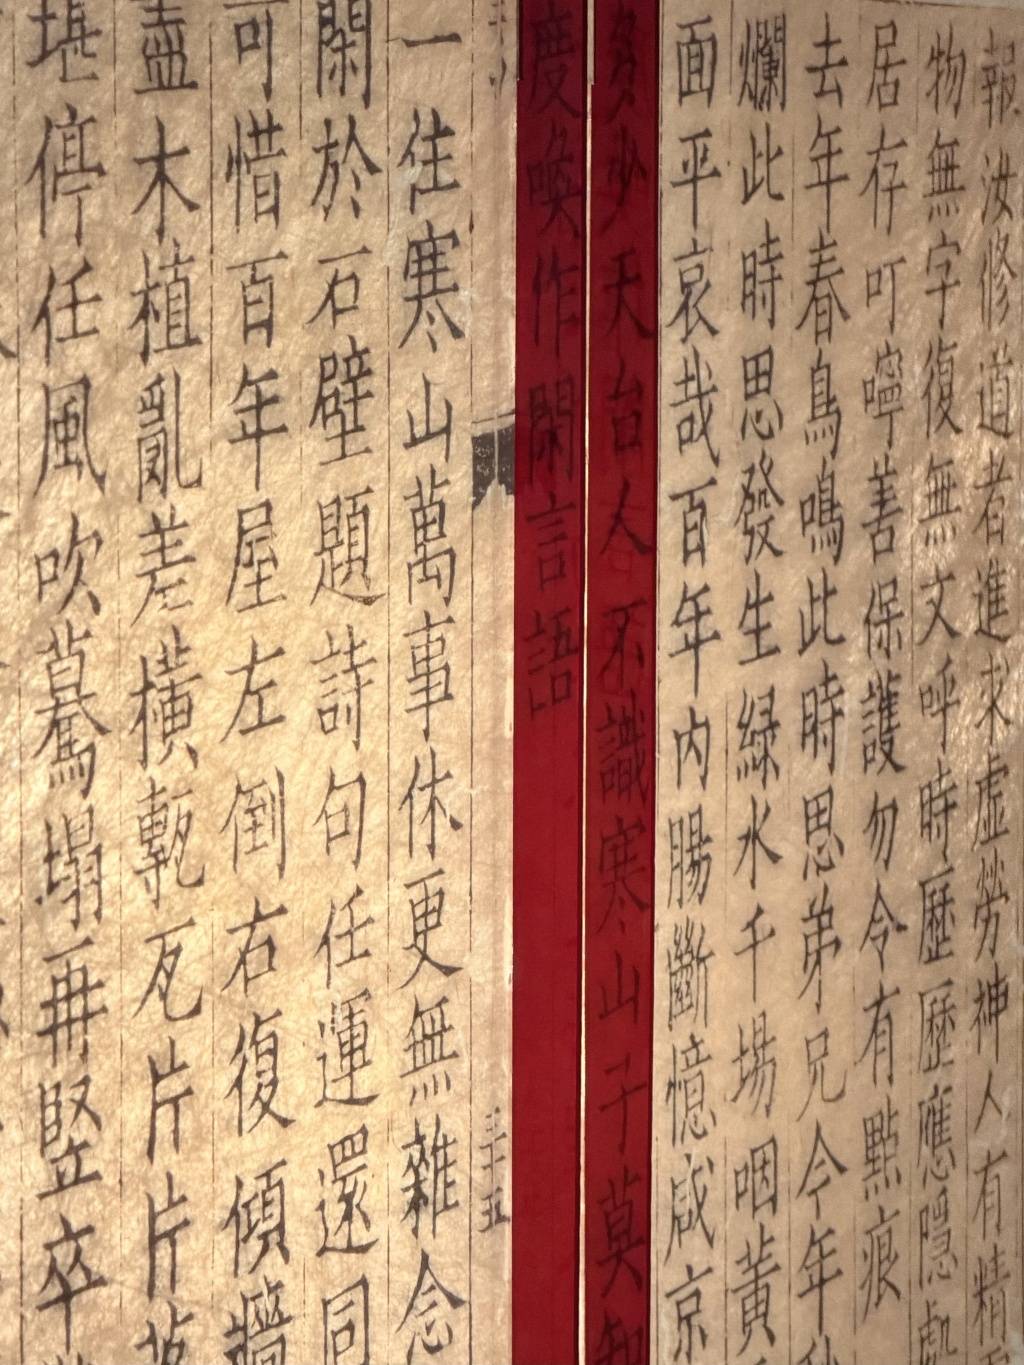 報汝修道者進求虛勞神人有精
物無字復無文呼時歷歷應隱處
居存叮嚀善保護勿令有點痕
去年春鳥鳴此時思弟兄今年
爛此時思發生綠水千場咽黃
面平哀哉百年內腸斷憶咸京
多少天台人不識寒山子莫知
度喚作閑言語
一住寒山萬事休更無雜念
閑於石壁題詩句任運還同
可惜百年屋左倒右復傾牆
盡木植亂差橫甎瓦片片
堪停任風吹驀塌再竪卒